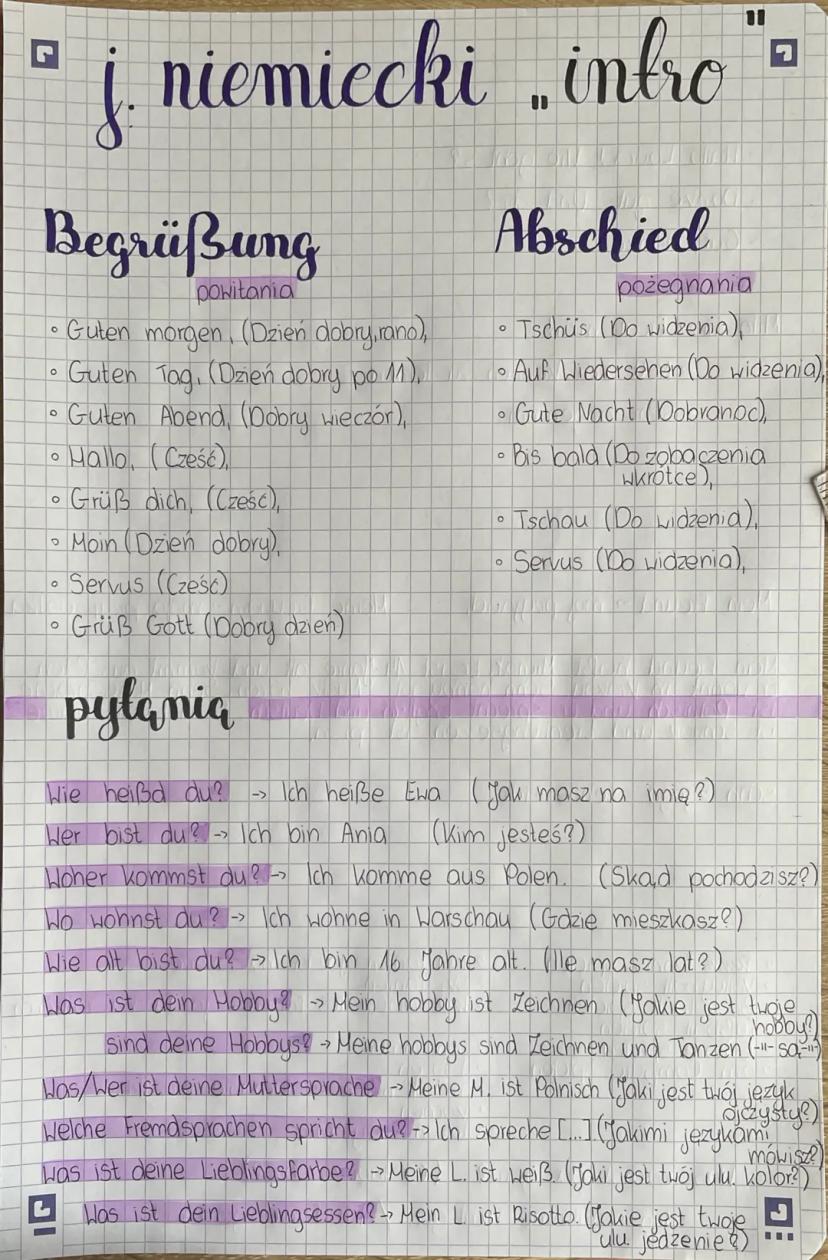 j. niemiecki „intro"
Begrüßung
powitania
◦ Guten morgen, (Dzień dobry,rano),
◦ Guten Tag, (Dzień dobry po 11),
◦ Guten Abend, (Dobry wieczór),
◦ Hallo, (Cześć),
◦ Grüß dich, (Cześć),
◦ Moin (Dzień dobry),
◦ Servus (Cześć)
◦ Grüß Gott (Dobry dzień)
Abschied
pożegnania
◦ Tschüs (Do widzenia),
◦ Auf Wiedersehen (Do widzenia),
◦ Gute Nacht (Dobranoc),
◦ Bis bald (Do zobaczenia
wkrótce),
◦ Tschau (Do widzenia),
◦ Servus (Do widzenia),
pytania
Wie heißd du? → Ich heiße Ewa (Jak masz na imię?)
Wer bist du? → Ich bin Ania (Kim jesteś?)
Woher kommst du? → Ich komme aus Polen. (Skąd pochodzisz?)
Wo wohnst du? → Ich wohne in Warschau (Gdzie mieszkasz?)
Wie alt bist du? → Ich bin 16 Jahre alt. (Ile masz lat?)
Was ist dein Hobby? → Mein hobby ist Zeichnen (Jakie jest twoje
hobby?)
sind deine Hobbys? → Meine hobbys sind Zeichnen und Tanzen (-"- są-"-)
Was/Wer ist deine Muttersprache → Meine M. ist Polnisch (Jaki jest twój język
ojczysty?)
Welche Fremdsprachen spricht du? → Ich spreche [...] (Jakimi językami
mówisz?)
Was ist deine Lieblingsfarbe? → Meine L. ist weiß. (Jaki jest twój ulu. kolor?)
Was ist dein Lieblingsessen? → Mein L. ist Risotto. (Jakie jest twoje
ulu. jedzenie?)